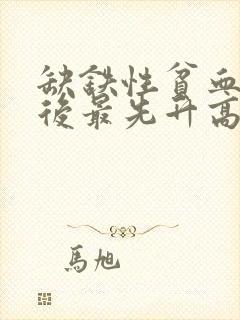 缺鉄性貧血
後最先升高
馬旭